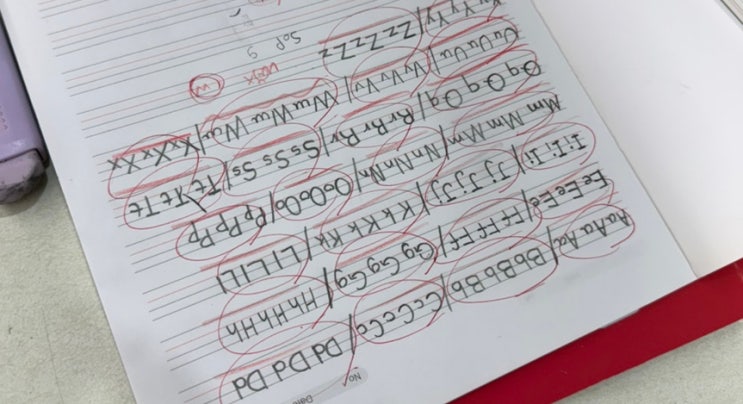 No.
Date
Aa Aa Aa / Bb Bb Bb / Cc Cc Cc / Dd Dd Dd
Ee Ee Ee / Ff Ff Ff / Gg Gg Gg / Hh Hh Hh
Ii Ii Ii / Jj Jj Jj / Kk Kk Kk / Ll Ll Ll
Mm Mm Mm / Nn Nn Nn / Oo Oo Oo / Pp Pp Pp
Qq Qq Qq / Rr Rr Rr / Ss Ss Ss / Tt Tt Tt
Uu Uu Uu / Vv Vv Vv / Ww Ww Ww / Xx Xx Xx
Yy Yy Yy / Zz Zz Zz